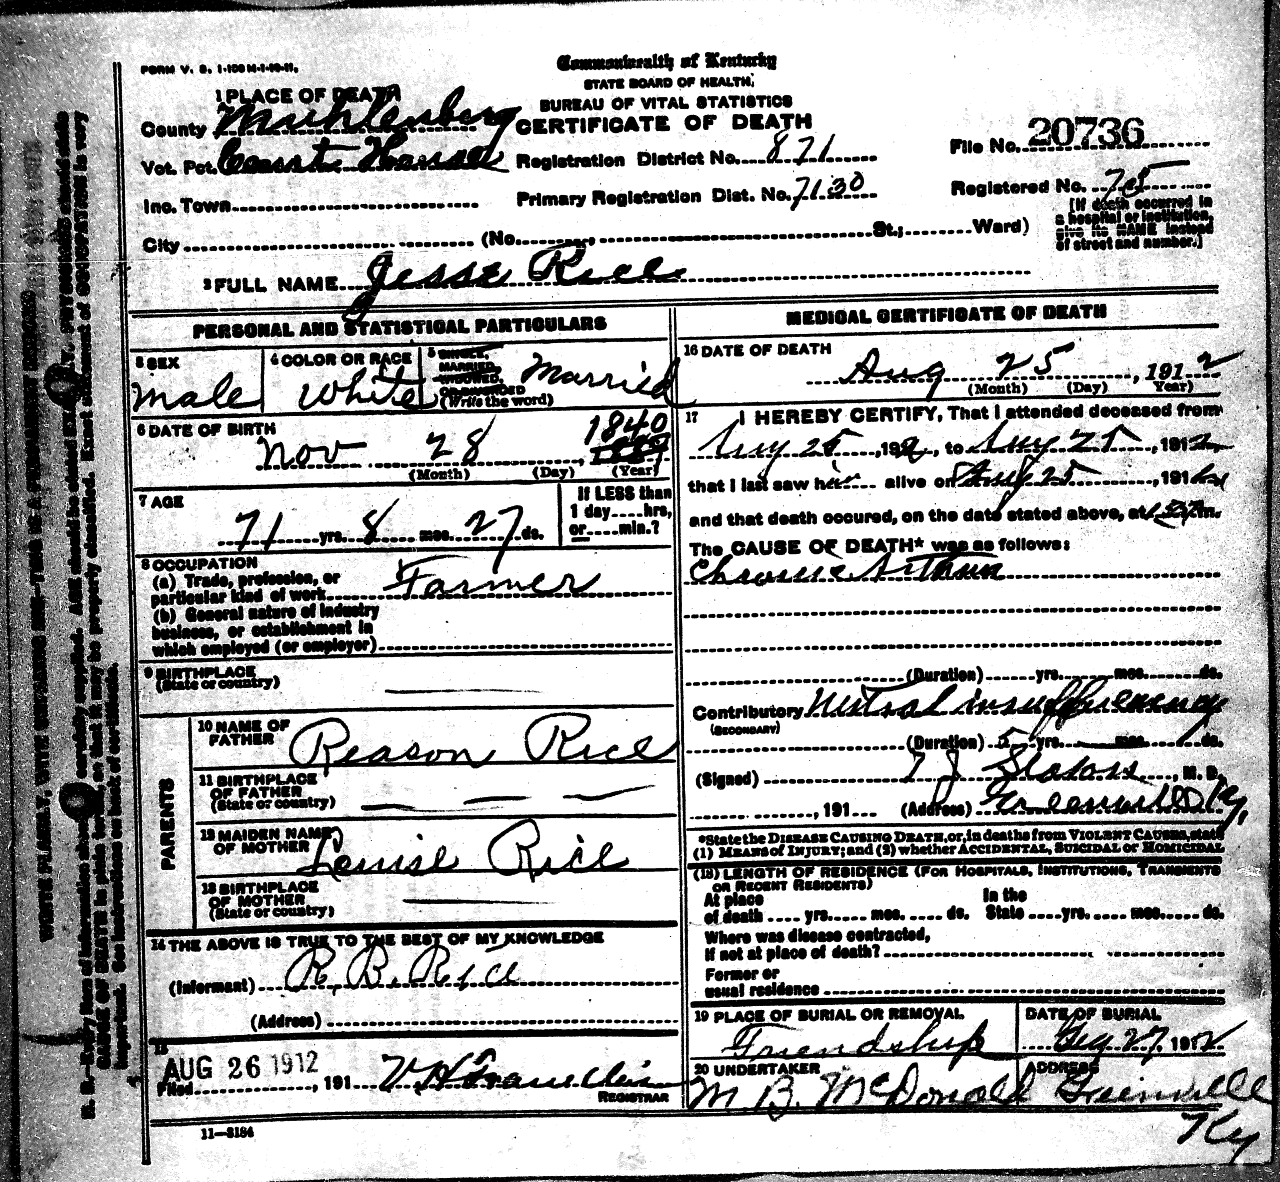 FORM V. S. 1-100M-1-10-11.
Commonwealth of Kentucky
STATE BOARD OF HEALTH,
BUREAU OF VITAL STATISTICS
CERTIFICATE OF DEATH
1 PLACE OF DEATH
County Muhlenberg
Vot. Pct. Court House
Inc. Town
City (No. , St.; Ward)
Registration District No. 871
Primary Registration Dist. No. 7130
File No. 20736
Registered No. 75
[If death occurred in
a hospital or institution,
give its NAME instead
of street and number.]
2 FULL NAME Jesse Rice
PERSONAL AND STATISTICAL PARTICULARS
3 SEX
Male
4 COLOR OR RACE
White
5 SINGLE,
MARRIED,
WIDOWED,
OR DIVORCED
(Write the word)
Married
6 DATE OF BIRTH
Nov 28 , 1840
(Month) (Day) (Year)
7 AGE
71 yrs. 8 mos. 27 ds.
If LESS than
1 day hrs,
or min.?
8 OCCUPATION
(a) Trade, profession, or
particular kind of work Farmer
(b) General nature of industry
business, or establishment in
which employed (or employer)
9 BIRTHPLACE
(State or country)
PARENTS
10 NAME OF
FATHER Reason Rice
11 BIRTHPLACE
OF FATHER
(State or country)
12 MAIDEN NAME
OF MOTHER Louise Rice
13 BIRTHPLACE
OF MOTHER
(State or country)
14 THE ABOVE IS TRUE TO THE BEST OF MY KNOWLEDGE
(Informant) R. B. Rice
(Address)
15
AUG 26 1912
Filed , 191
REGISTRAR
11-3184
MEDICAL CERTIFICATE OF DEATH
16 DATE OF DEATH
Aug 25 , 1912
(Month) (Day) (Year)
17 I HEREBY CERTIFY, That I attended deceased from
Aug 25 , 1912, to Aug 25 , 1912,
that I last saw him alive on Aug 25 , 191
and that death occured, on the date stated above, at m.
The CAUSE OF DEATH* was as follows:
Chronic
(Duration) yrs. mos. ds.
Contributory Mitral insufficiency
(SECONDARY)
(Duration) 5 yrs. mos. ds.
(Signed) T J Slaton , M. D.
, 191 (Address) Greenville Ky.
*State the DISEASE CAUSING DEATH, or, in deaths from VIOLENT CAUSES, state
(1) MEANS OF INJURY; and (2) whether ACCIDENTAL, SUICIDAL or HOMICIDAL
(18) LENGTH OF RESIDENCE (FOR HOSPITALS, INSTITUTIONS, TRANSIENTS
OR RECENT RESIDENTS)
At place
of death yrs. mos. ds.
In the
State yrs. mos. ds.
Where was disease contracted,
If not at place of death?
Former or
usual residence
19 PLACE OF BURIAL OR REMOVAL
Friendship
DATE OF BURIAL
27, 1912
20 UNDERTAKER
M B. McDonald
ADDRESS
Greenville
Ky